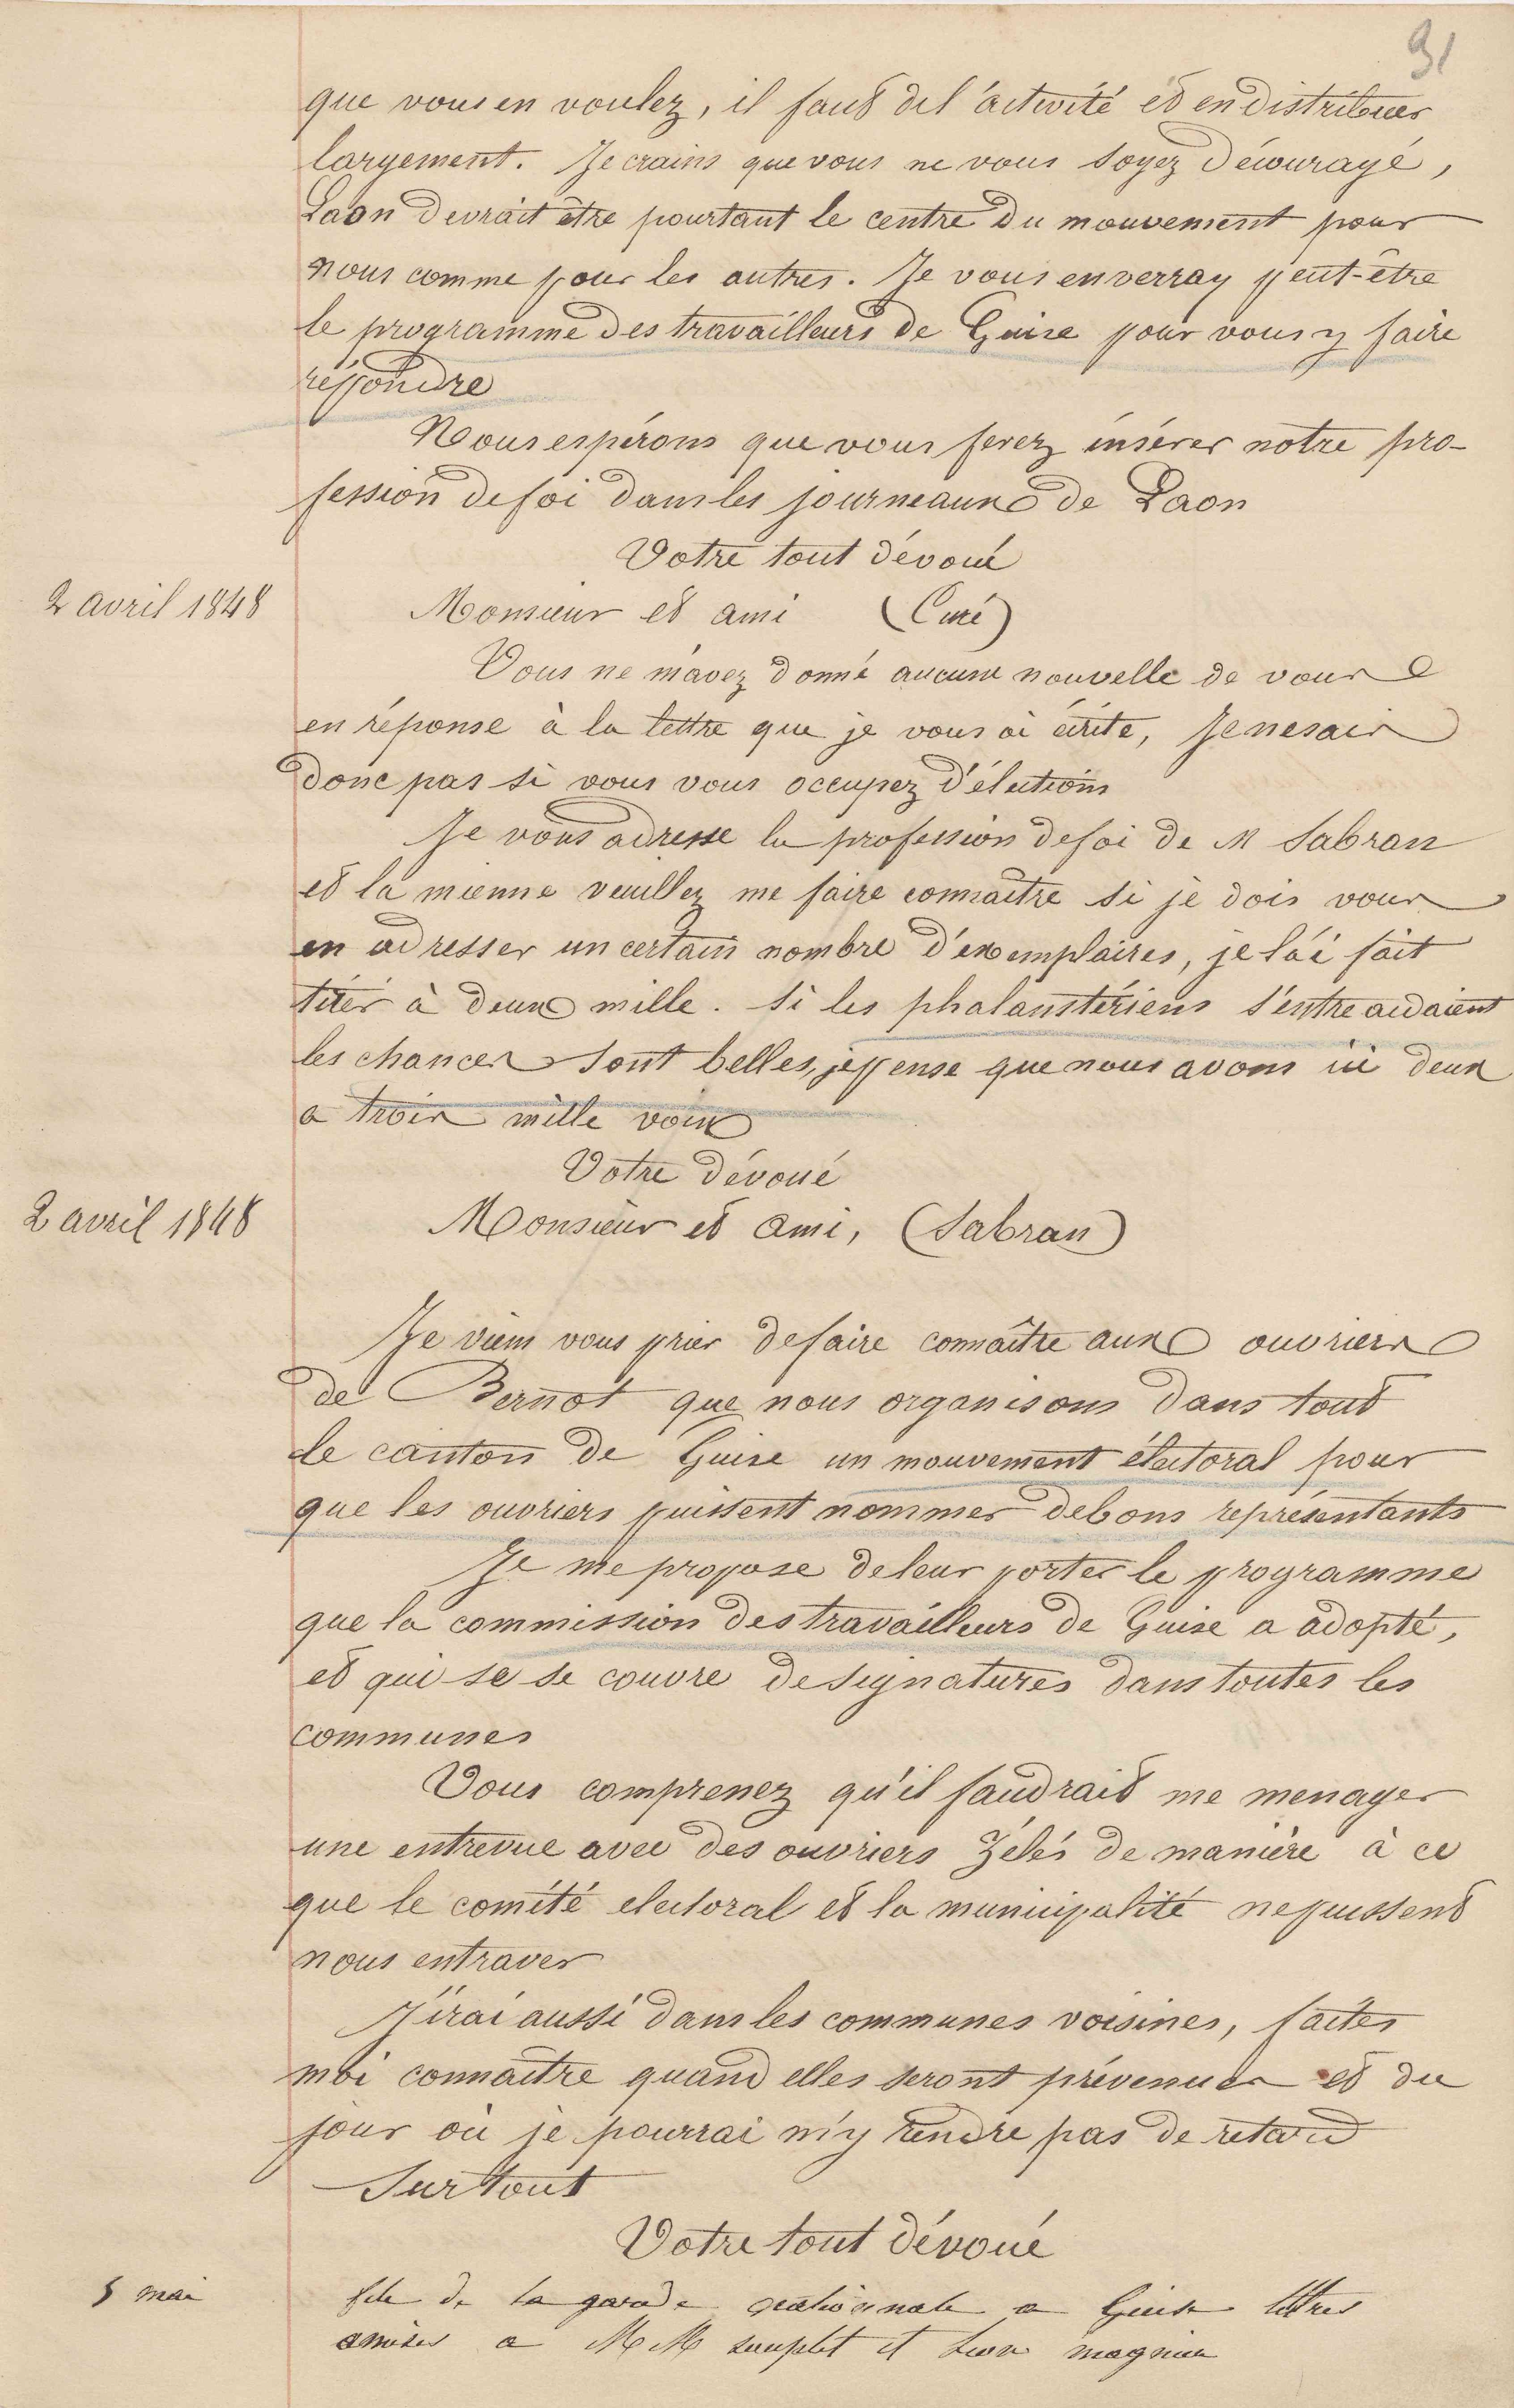 31
que vous en voulez, il faut de l'activité et en distribuer
largement. Je crains que vous ne vous soyez découragé,
Laon devrait être pourtant le centre du mouvement pour
nous comme pour les autres. Je vous enverray peut-être
le programme des travailleurs de Guise pour vous y faire
répondre
Nous espérons que vous ferez insérer notre pro-
fession de foi dans les journeaux de Laon
Votre tout dévoué
2 avril 1848
Monsieur et ami (Curé)
Vous ne m'avez donné aucune nouvelle de vous
en réponse à la lettre que je vous ai écrite, je ne sais
donc pas si vous vous occupez d'élections
Je vous adresse la profession de foi de M Sabran
et la mienne veuillez me faire connaître si je dois vous
en adresser un certain nombre d'exemplaires, je l'ai fait
tirer à deux mille. Si les phalanstériens s'entreaidaient
les chances sont belles, je pense que nous avons ici deux
a trois mille voix
Votre dévoué
2 avril 1848
Monsieur et ami, (Sabran)
Je viens vous prier de faire connaître aux ouvriers
de Bernot que nous organisons dans tout
le canton de Guise un mouvement électoral pour
que les ouvriers puissent nommer de bons représentants
Je me propose de leur porter le programme
que la commission des travailleurs de Guise a adopté,
et qui se se couvre de signatures dans toutes les
communes
Vous comprenez qu'il faudrait me menager
une entrevue avec des ouvriers zélés de manière à ce
que le comité electoral et la municipalité ne puissent
nous entraver
J'irai aussi dans les communes voisines, faites
moi connaître quand elles seront prévenues et du
jour où je pourrai m'y rendre pas de retard
Surtout
Votre tout dévoué
5 mai
fete de la garde nationale a Guise lettres
a MM souplet et Leon magnier